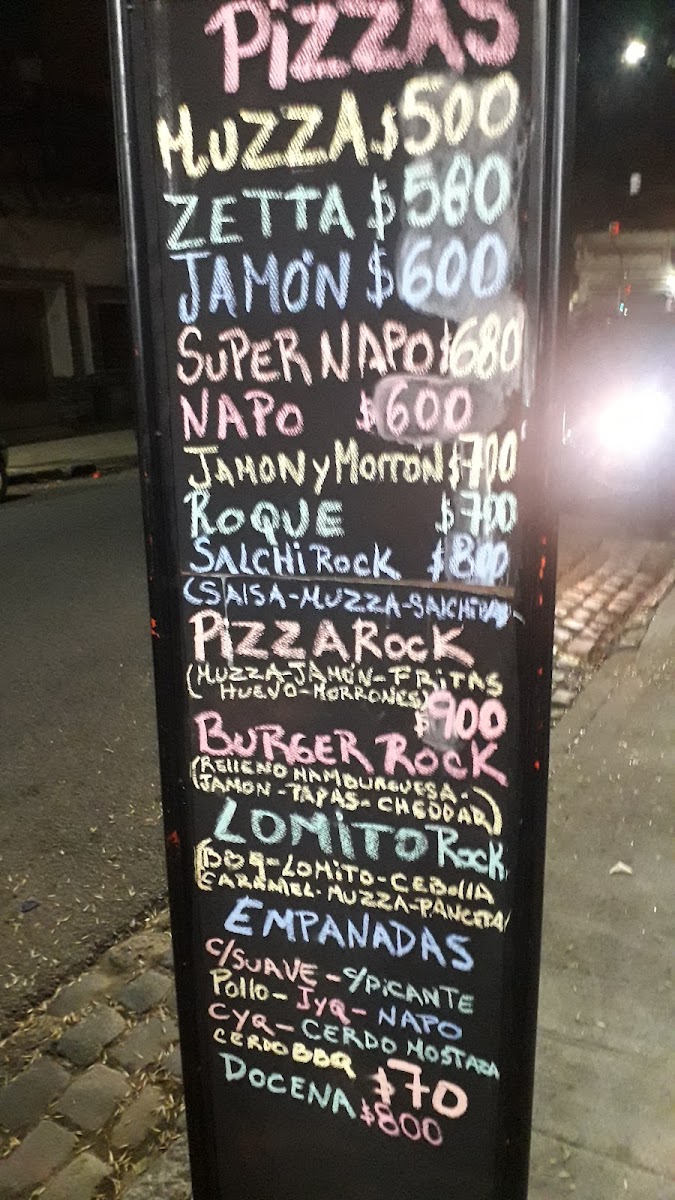 PIZZAS
MUZZA $500
ZETTA $580
JAMÓN $600
SUPER NAPO $680
NAPO $600
JAMON Y MORRÓN $700
ROQUE $700
SALCHIROCK $800
(SALSA-MUZZA-SALCHICHA)
PIZZA ROCK
(MUZZA-JAMÓN-FRITAS
HUEVO-MORRONES)
$900
BURGER ROCK
(RELLENO HAMBURGUESA-
JAMON-PAPAS-CHEDDAR)
LOMITO ROCK
(BBQ-LOMITO-CEBOLLA
CARAMEL-MUZZA-PANCETA)
EMPANADAS
C/SUAVE-C/PICANTE
POLLO-JYQ-NAPO
CYQ-CERDO MOSTAZA
CERDO BBQ
$70
DOCENA $800